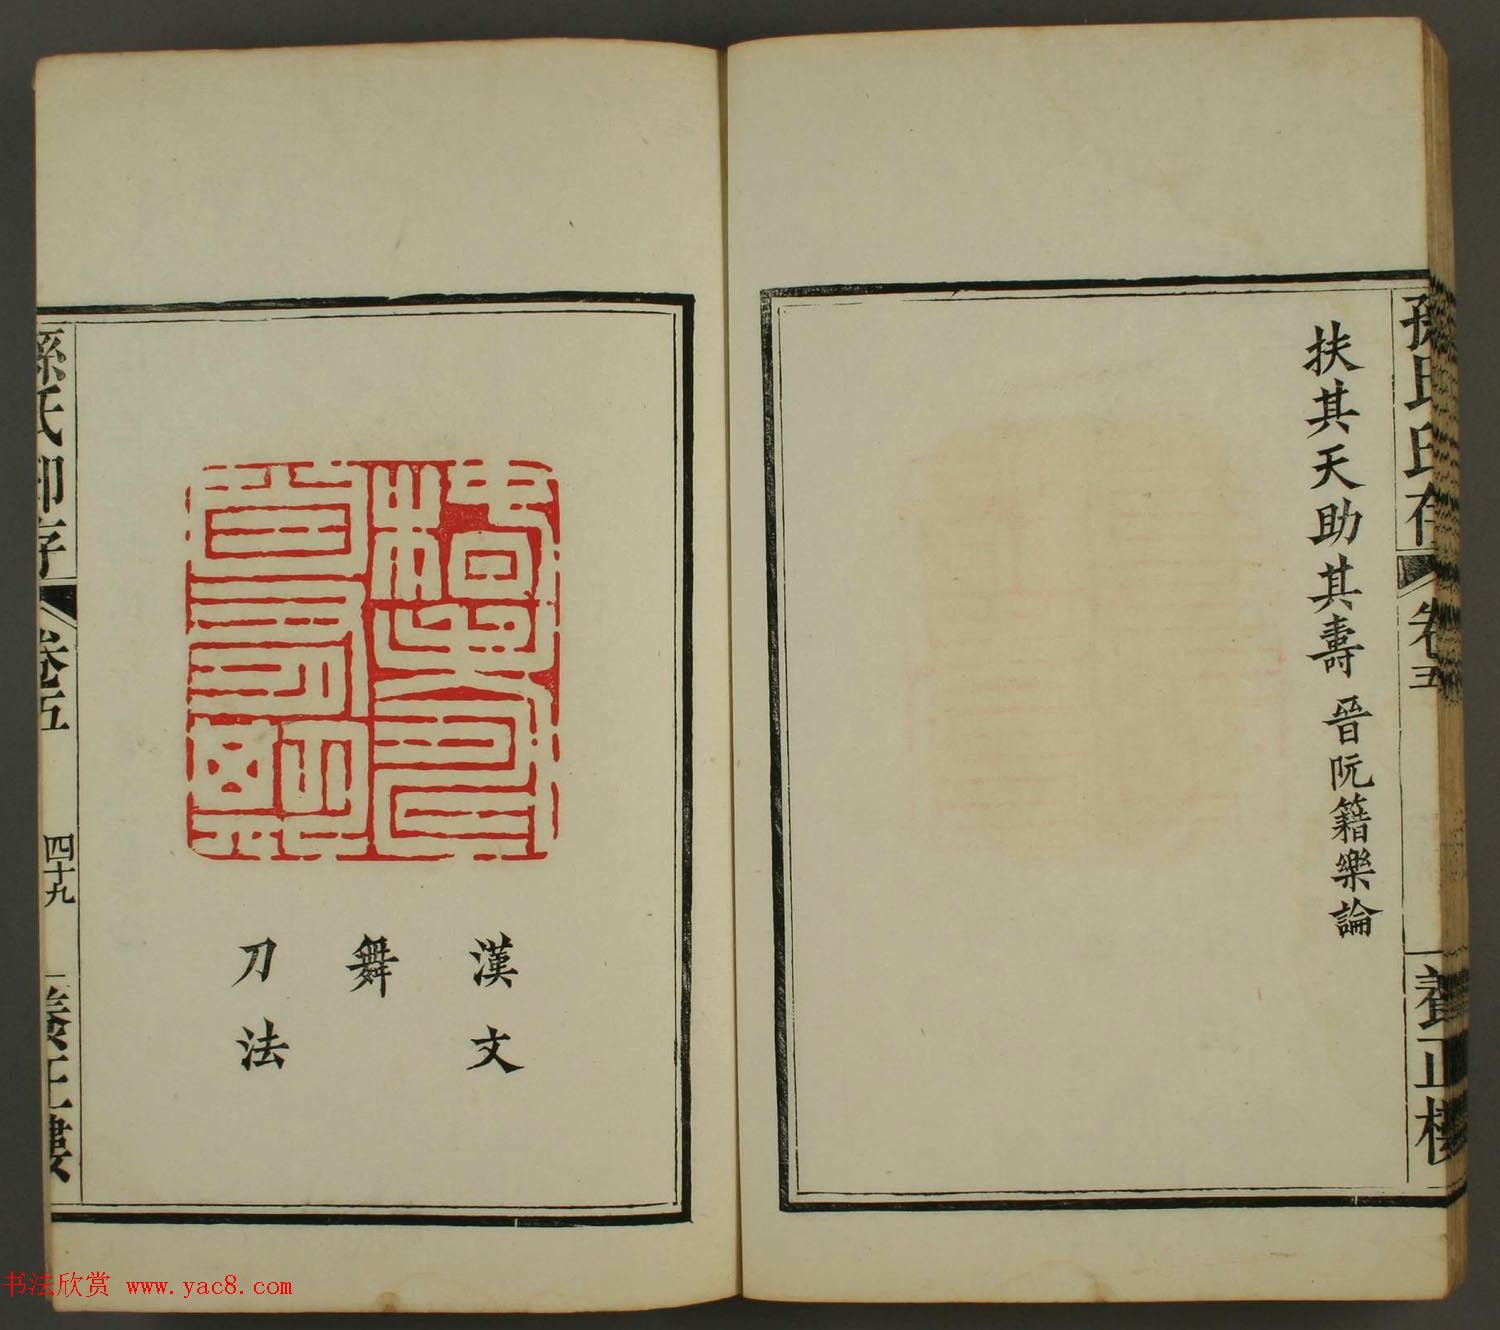 孫氏印存 卷五 養正樓
扶其天助其壽 晉阮籍樂論
漢文
舞
刀法
孫氏印存 卷五 四十九 養正樓
书法欣赏 www.yac8.com